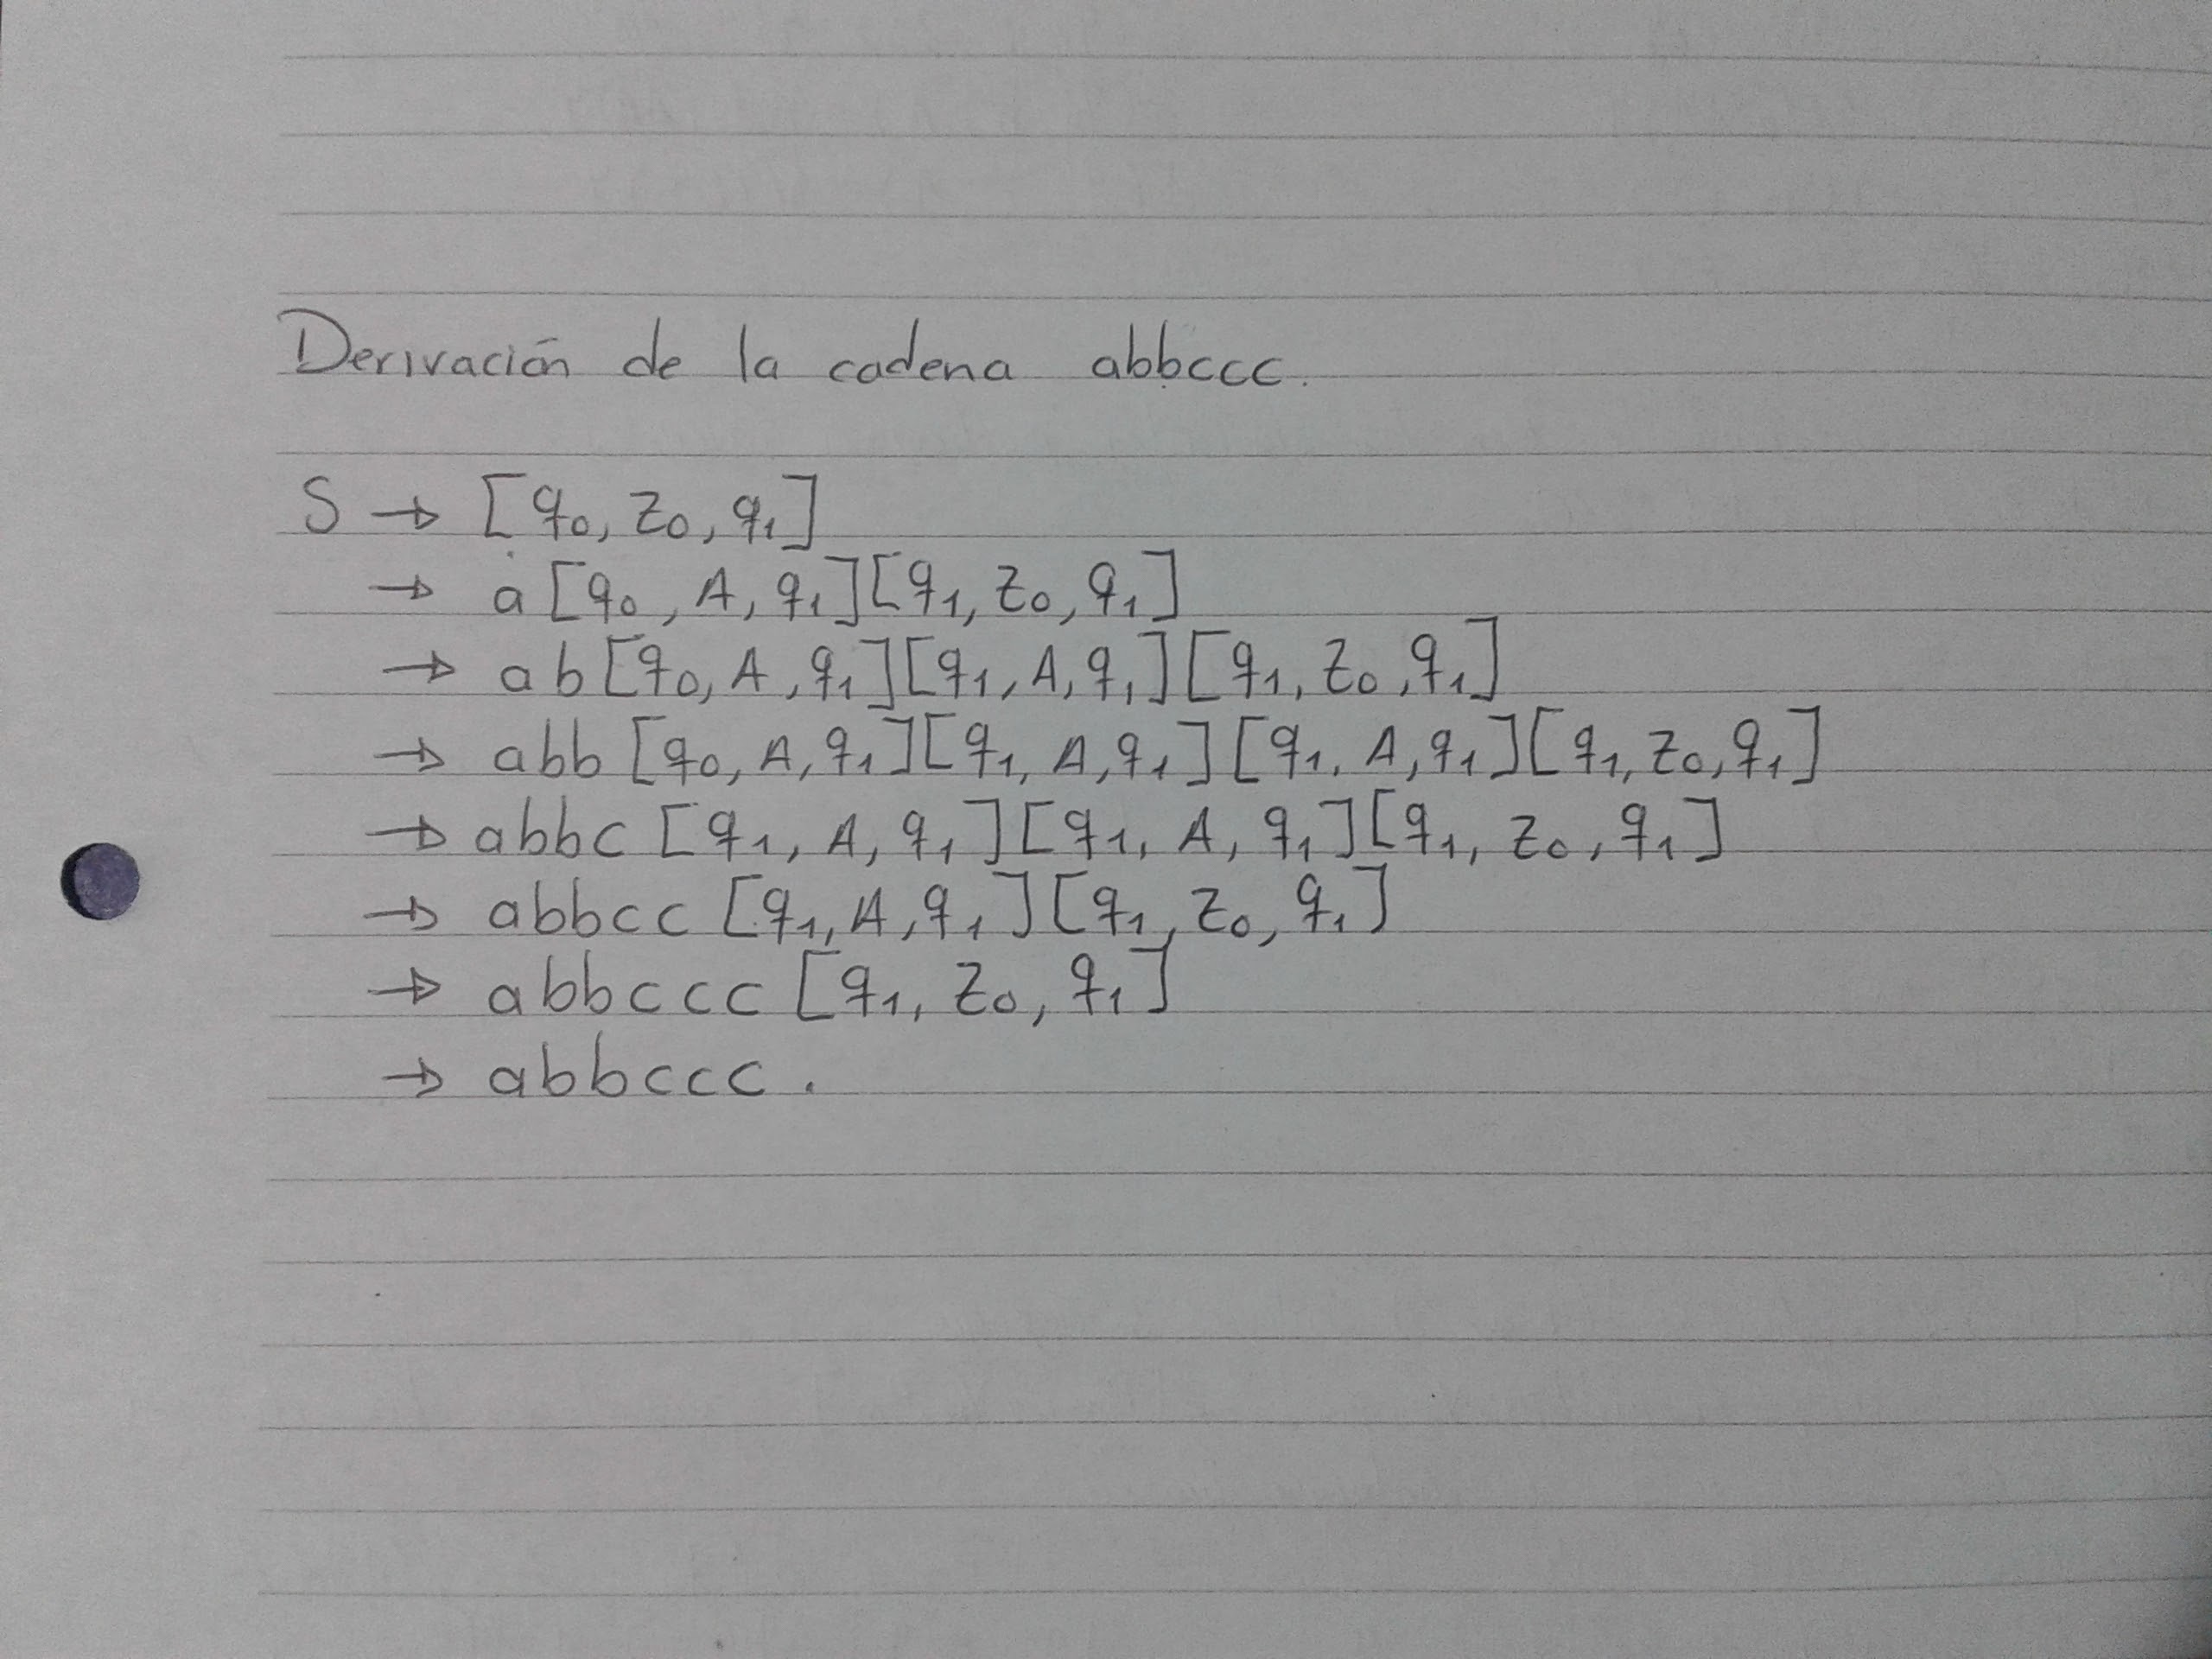 Derivación de la cadena abbccc.
S → [q₀, z₀, q₁]
→ a[q₀, A, q₁][q₁, z₀, q₁]
→ ab[q₀, A, q₁][q₁, A, q₁][q₁, z₀, q₁]
→ abb[q₀, A, q₁][q₁, A, q₁][q₁, A, q₁][q₁, z₀, q₁]
→ abbc[q₁, A, q₁][q₁, A, q₁][q₁, z₀, q₁]
→ abbcc[q₁, A, q₁][q₁, z₀, q₁]
→ abbccc[q₁, z₀, q₁]
→ abbccc.